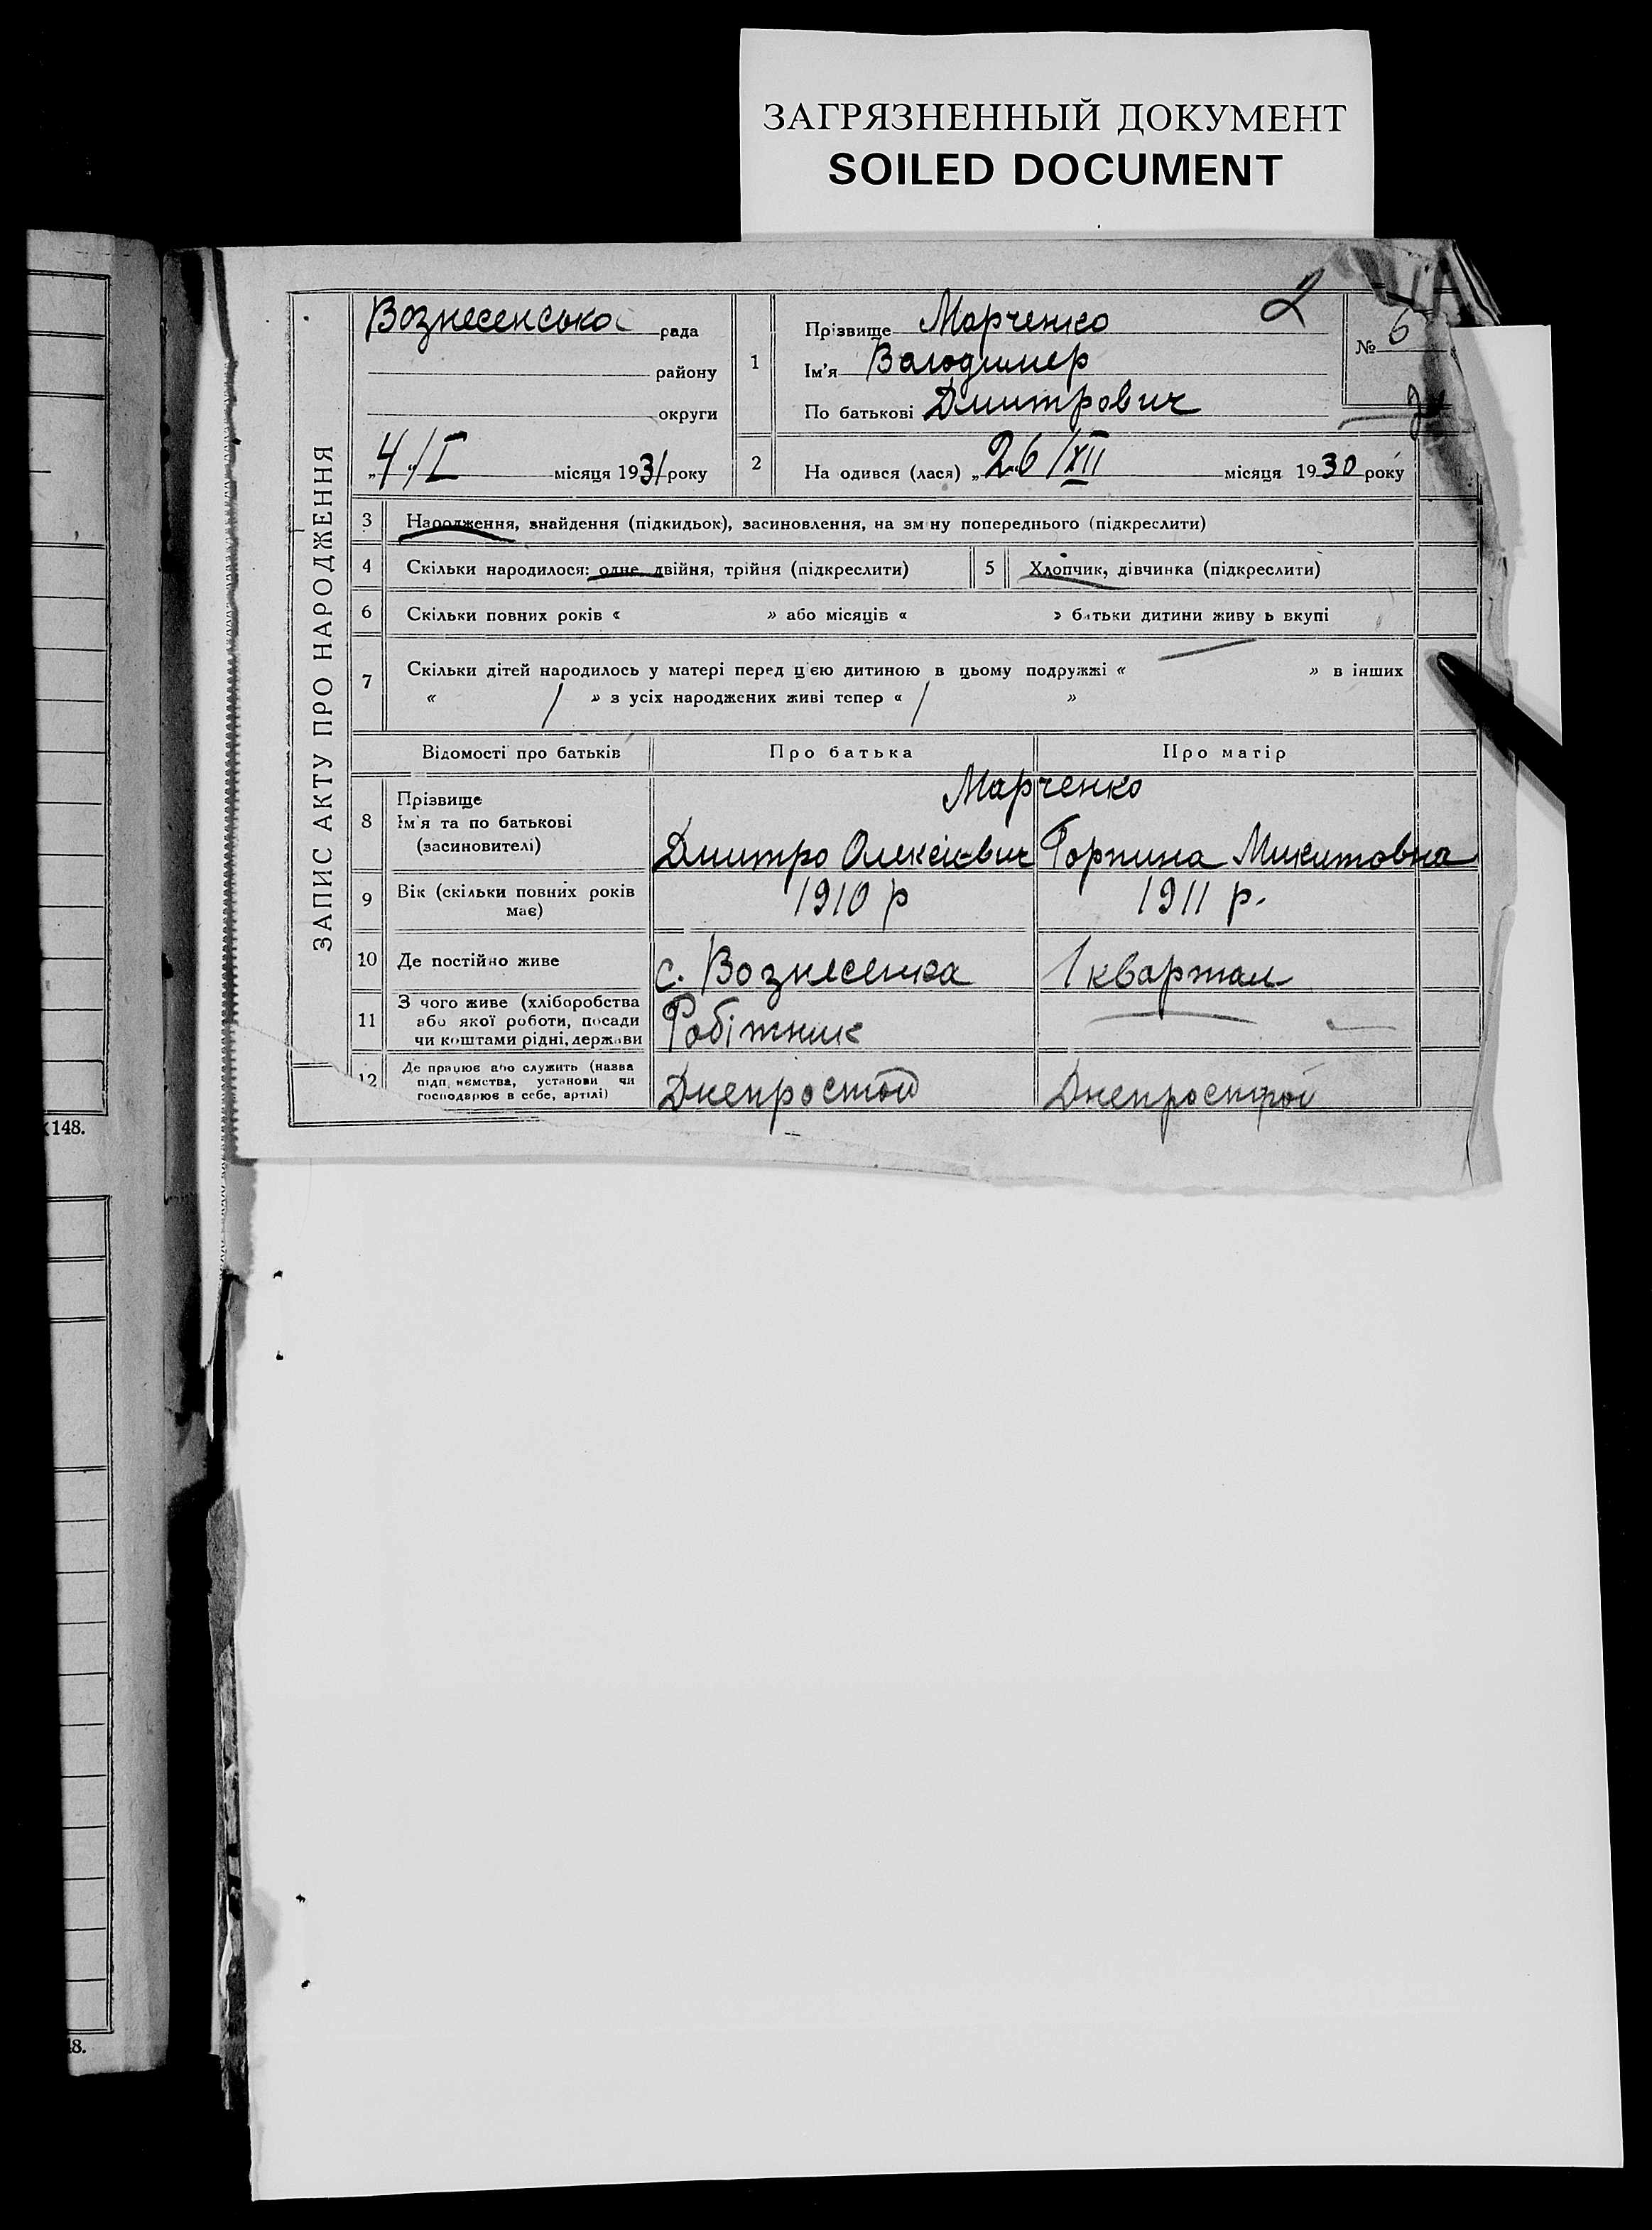 ЗАГРЯЗНЕННЫЙ ДОКУМЕНТ
SOILED DOCUMENT
ЗАПИС АКТУ ПРО НАРОДЖЕННЯ
Вознесенська рада
району
округи
„4"/I місяця 1931 року
1
Прізвище Марченко
Ім'я Володимер
По батькові Дмитрович
№ 6
2
На одився (лася) „26/XII місяця 1930 року
3 Народження, знайдення (підкидьок), засиновлення, на зм ну попереднього (підкреслити)
4 Скільки народилося: одне двійня, трійня (підкреслити)
5 Хлопчик, дівчинка (підкреслити)
6 Скільки повних років « » або місяців « » батьки дитини живу ь вкупі
7 Скільки дітей народилось у матері перед цією дитиною в цьому подружжі « — » в інших
« / » з усіх народжених живі тепер « / »
Відомості про батьків Про батька Про матір
Марченко
8 Прізвище
Ім'я та по батькові
(засиновителі)
Дмитро Олексієвич Горпина Микитовна
9 Вік (скільки повних років
має)
1910 р 1911 р.
10 Де постійно живе с. Вознесенка 1 квартал
11 З чого живе (хліборобства
або якої роботи, посади
чи коштами рідні, держави
Робітник —
12 Де працює або служить (назва
підп иємства, установи чи
господарює в себе, артілі)
Днепростой Днепрострой
148.
48.